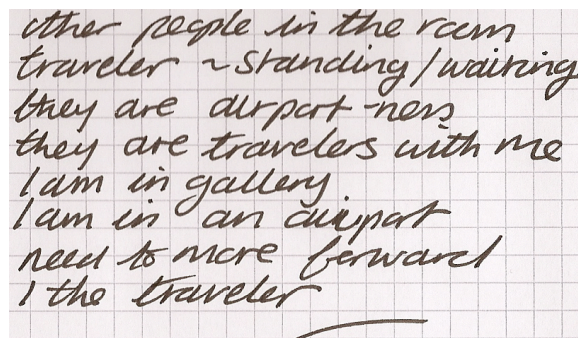 other people in the room
traveler ~ standing / waiting
they are airport-ness
they are travelers with me
I am in gallery
I am in an airport
need to move forward
I the traveler